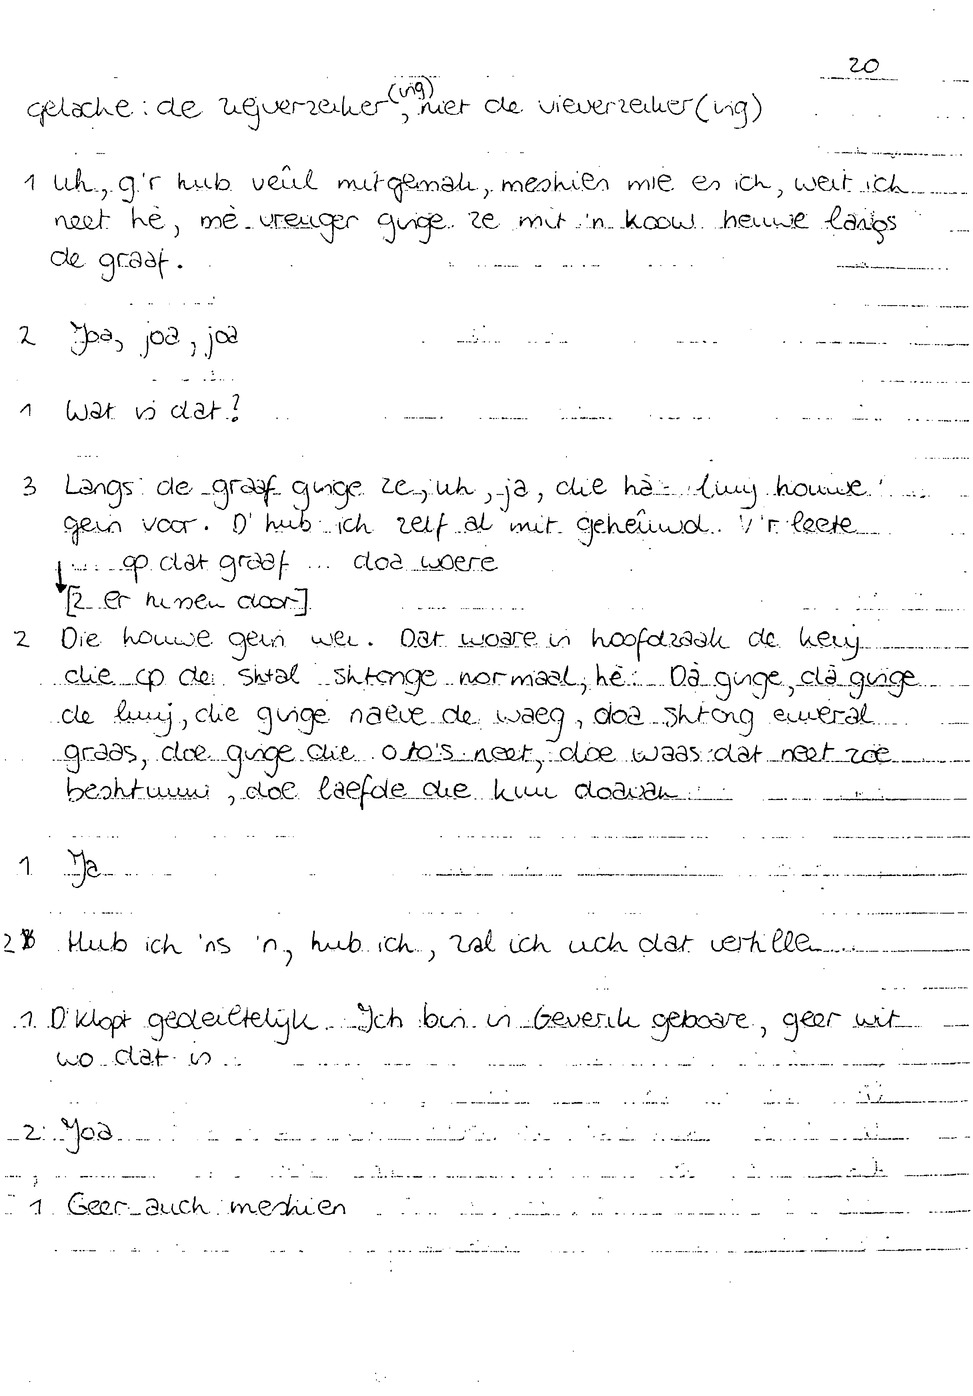 20
gelache: de zejverzeiker(ing), niet de vieverzeiker(ing)
1 Uh, g'r hub veûl mitgemak, meshien mie es ich, weit ich
neet hè, mè vreuger ginge ze mit 'n koow heuwe langs
de graaf.
2 Joa, joa, joa
1 Wat is dat?
3 Langs de graaf ginge ze, uh, ja, die hà luuj houwe
gein voor. D' hub ich zelf al mit geheûwd. V'r leete
... op dat graaf ... doa woere
[2 er tussen door]
2 Die houwe gein wei. Dat woare in hoofdzaak de keuj
die op de shtal shtonge normaal, hè. Dà ginge, dà ginge
de luuj, die ginge naeve de waeg, doa shtong euveral
graas, doe ginge die oto's neet, doe waas dat neet zoe
beshtumi, doe laefde die kuu doavan
1 Ja
2 Hub ich 'ns 'n, hub ich, zal ich uch dat vertille
1 D'klopt gedeiltelijk. Ich bin in Geverik geboare, geer wit
wo dat is
2 Joa
1 Geer auch meshien